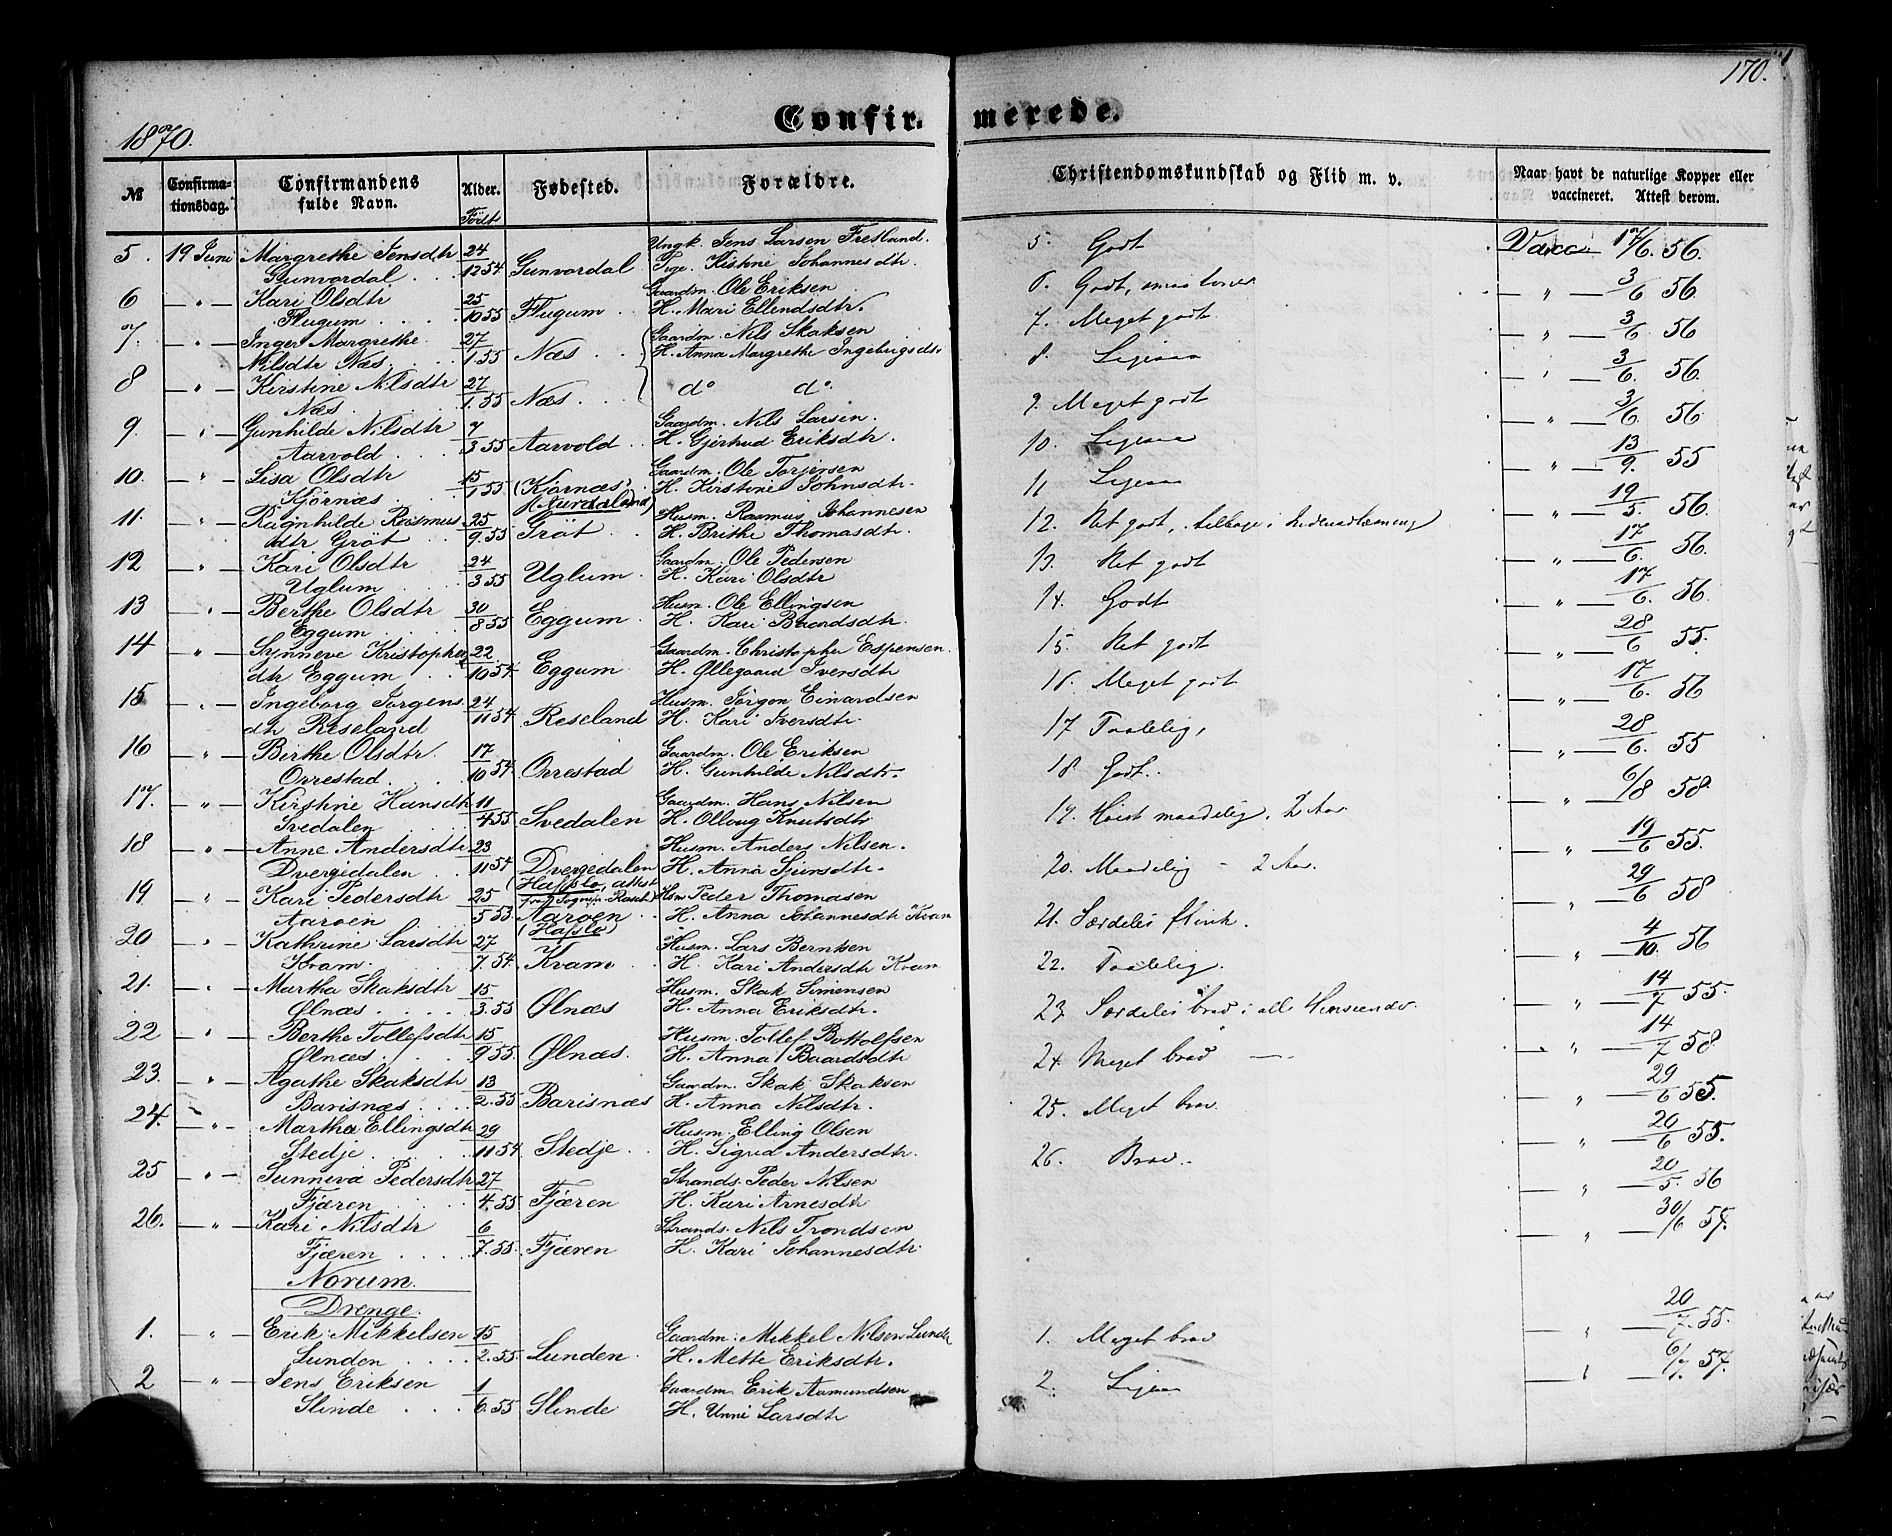 170.
1870.
Confirmerede.
№ Confirmationsdag. Confirmandens fulde Navn. Alder. Født Fødested. Forældre. Christendomskundskab og Flid m. v. Naar havt de naturlige Kopper eller vaccineret. Attest derom.
5. 19 Juni Margrethe Jensdtr 24 Ungk. Jens Larsen Fretland. 5. Godt Vacc. 17/6. 56.
Gunvordal 12 54 Gunvordal Pige. Kistine Johannesdtr.
6 — " — Kari Olsdtr 25 Gaardm. Ole Eriksen 6. Godt, — " — 3/6 56.
Flugum 10 55 Flugum H. Mari Ellendsdtr.
7. — " — Inger Margrethe 27 Gaardm. Nils Skaksen 7. Meget godt — " — 3/6 56
Nilsdtr Næs. 1.55 Næs H. Anna Margrethe Ingebrigsdtr
8 — " — Kirstine Nilsdtr 27 do do. 8. Ligesaa — " — 3/6. 56.
Næs. 1.55 Næs.
9. — " — Gunhilde Nilsdtr 7 Gaardm. Nils Larsen. 9. Meget godt — " — 3/6. 56
Aarvold 3 55 Aarvold H. Gjertrud Eriksdtr.
10. — " — Lisa Olsdtr 15 Gaardm. Ole Torjersen 10. Ligesaa — " — 13/9. 55
Kjørnæs. 1 55 (Kjørnæs, Aurdalend) H. Kirstine Johnsdtr.
11. — " — Ragnhilde Rasmus 25 Husm. Rasmus Johannesen 11 Ligesaa — " — 19/5. 56.
dtr Grøt 9.55 Grøt H. Brithe Thomasdtr.
12 — " — Kari Olsdtr 24 Gaardm. Ole Pedersen 12. Net godt, tilbage i Indenadlæsning — " — 17/6. 56.
Uglum 3 55 Uglum H. Kari Olsdtr
13 — " — Berthe Olsdtr 30 Husm. Ole Ellingsen 13. Net godt — " — 17/6. 56.
Eggum 8 55 Eggum H. Kari Baardsdtr.
14 — " — Synneve Kristopher 22 Gaardm. Christopher Espensen. 14. Godt — " — 28/6 55.
dtr Eggum 10 54. Eggum H. Øllegaard Iversdtr
15 — " — Ingeborg Jørgens 24 Husm. Jørgen Einardsen 15. Net godt — " — 17/6. 56
dtr Reseland 11 54. Reseland H. Kari Iversdtr.
16 — " — Birthe Olsdtr. 17 Gaardm. Ole Eriksen 16. Meget godt — " — 28/6. 55
Orrestad. 10 54. Orrestad H. Gunhilde Nilsdtr.
17. — " — Kirstine Hansdtr 11 Gaardm. Hans Nilsen 17 Taalelig, — " — 6/8 58.
Svedalen 4 55 Svedalen H. Olloug Knutsdtr
18 — " — Anne Andersdtr 23 Husm. Anders Nilsen. 18. Godt. — " — 19/6 55.
Dvergedalen 11 54 Dvergedalen H. Anna Sjursdtr.
19 — " — Kari Pedersdtr 25 (Hafslo, Attest fra Sognepr. Rasch) Hsm Peder Thomasen 19. Høist maadelig. 2 Aar — " — 29/6 58
Aarøen 5 53 Aarøen H. Anna Johannesdtr Kvam
20 — " — Kathrine Larsdtr 27 (Hafslo) Husm. Lars Berntsen 20. Maadelig – 2 Aar. — " — 4/10. 56
Kvam. 7.54. Kvam H. Kari Andersdtr Kvam
21. — " — Martha Skaksdtr 15 Husm. Skak Simensen 21. Særdeles flink. — " — 14/7 55.
Ølnæs 3.55 Ølnæs H. Anna Eriksdtr.
22 — " — Berthe Tollefsdtr 15 Husm. Tollef Bottolfsen 22. Taalelig. — " — 14/7 58
Ølnæs. 9 55 Ølnæs. H. Anna Baardsdtr
23. — " — Agathe Skaksdtr 13 Gaardm. Skak Skaksen 23 Særdeles brav i all Henseende. — " — 29/6 55.
Barisnæs 2.55 Barisnæs H. Anna Nilsdtr.
24. — " — Martha Ellingsdtr 29 Husm. Elling Olsen 24 Meget brav — — " — 20/6 55.
Stedje 11 54 Stedje H. Sigrid Andersdtr.
25 — " — Sunneva Pedersdtr 27 Strands. Peder Nilsen 25. Meget brav. — " — 20/5. 56
Fjæren 4.55 Fjæren H. Kari Arnesdtr
26. — " — Kari Nilsdtr 6 Strands. Nils Trondsen 26. Brav. — " — 30/6 57.
Fjæren 7.55. Fjæren H. Kari Johannesdtr.
Norum.
Drenge.
1. — " — Erik Mikkelsen 15 Gaardm. Mikkel Nilsen Lunde 1. Meget brav — " — 20/7. 55.
Lunden 2.55 Lunden. H. Mette Eriksdtr.
2 — " — Jens Eriksen 1 Gaardm. Erik Aamundsen 2. Ligesaa — " — 6/7. 57.
Slinde 6.55 Slinde H. Unni Larsdtr